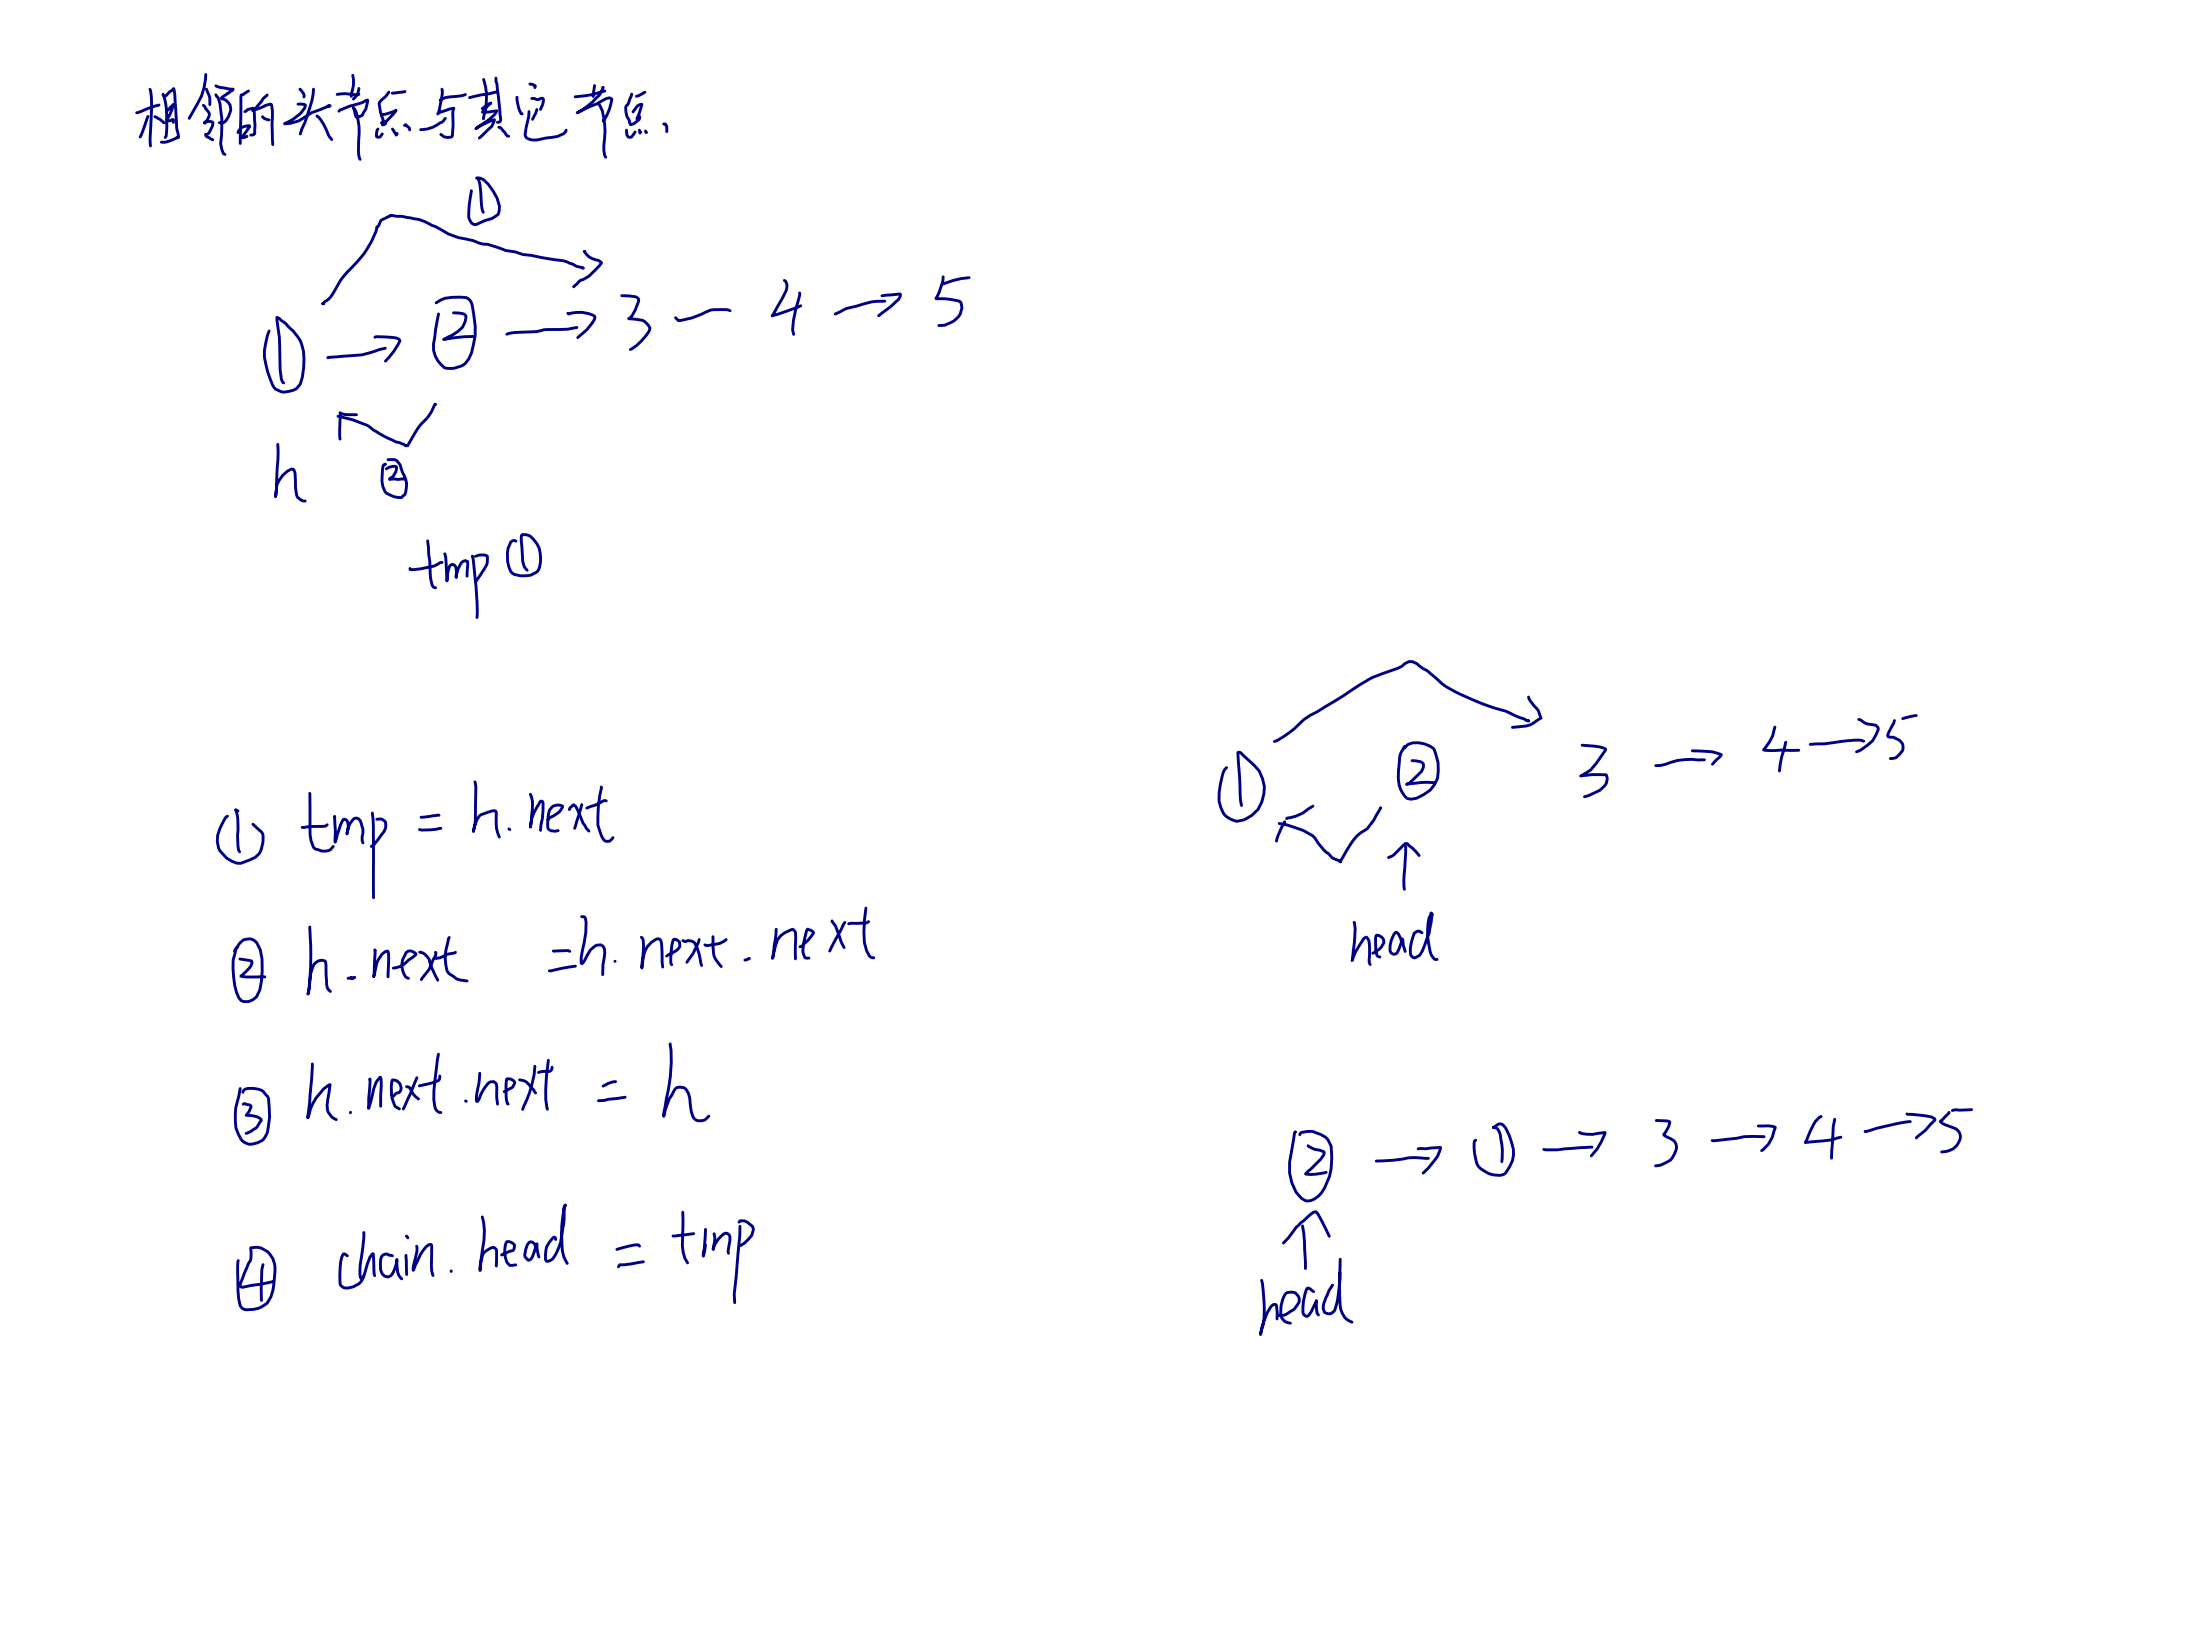 相邻的头节点与其它节点.
①
① → ② → 3 — 4 → 5
h ②
tmp ①
① tmp = h.next
② h.next = h.next.next
③ h.next.next = h
④ chain.head = tmp
① ② 3 → 4 → 5
head
② → ① → 3 → 4 → 5
head